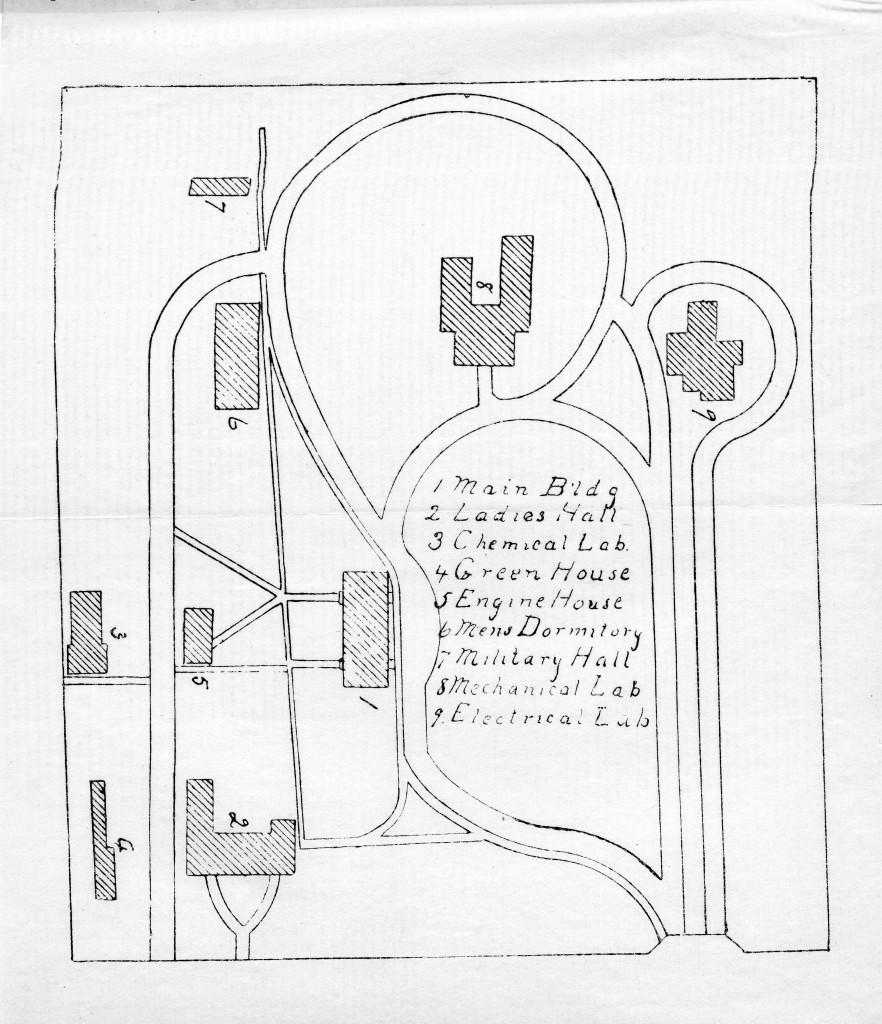 7
8
9
6
1 Main Bldg
2 Ladies Hall
3 Chemical Lab.
4 Green House
5 Engine House
6 Mens Dormitory
7 Military Hall
8 Mechanical Lab
9. Electrical Lab
3
5
1
2
4